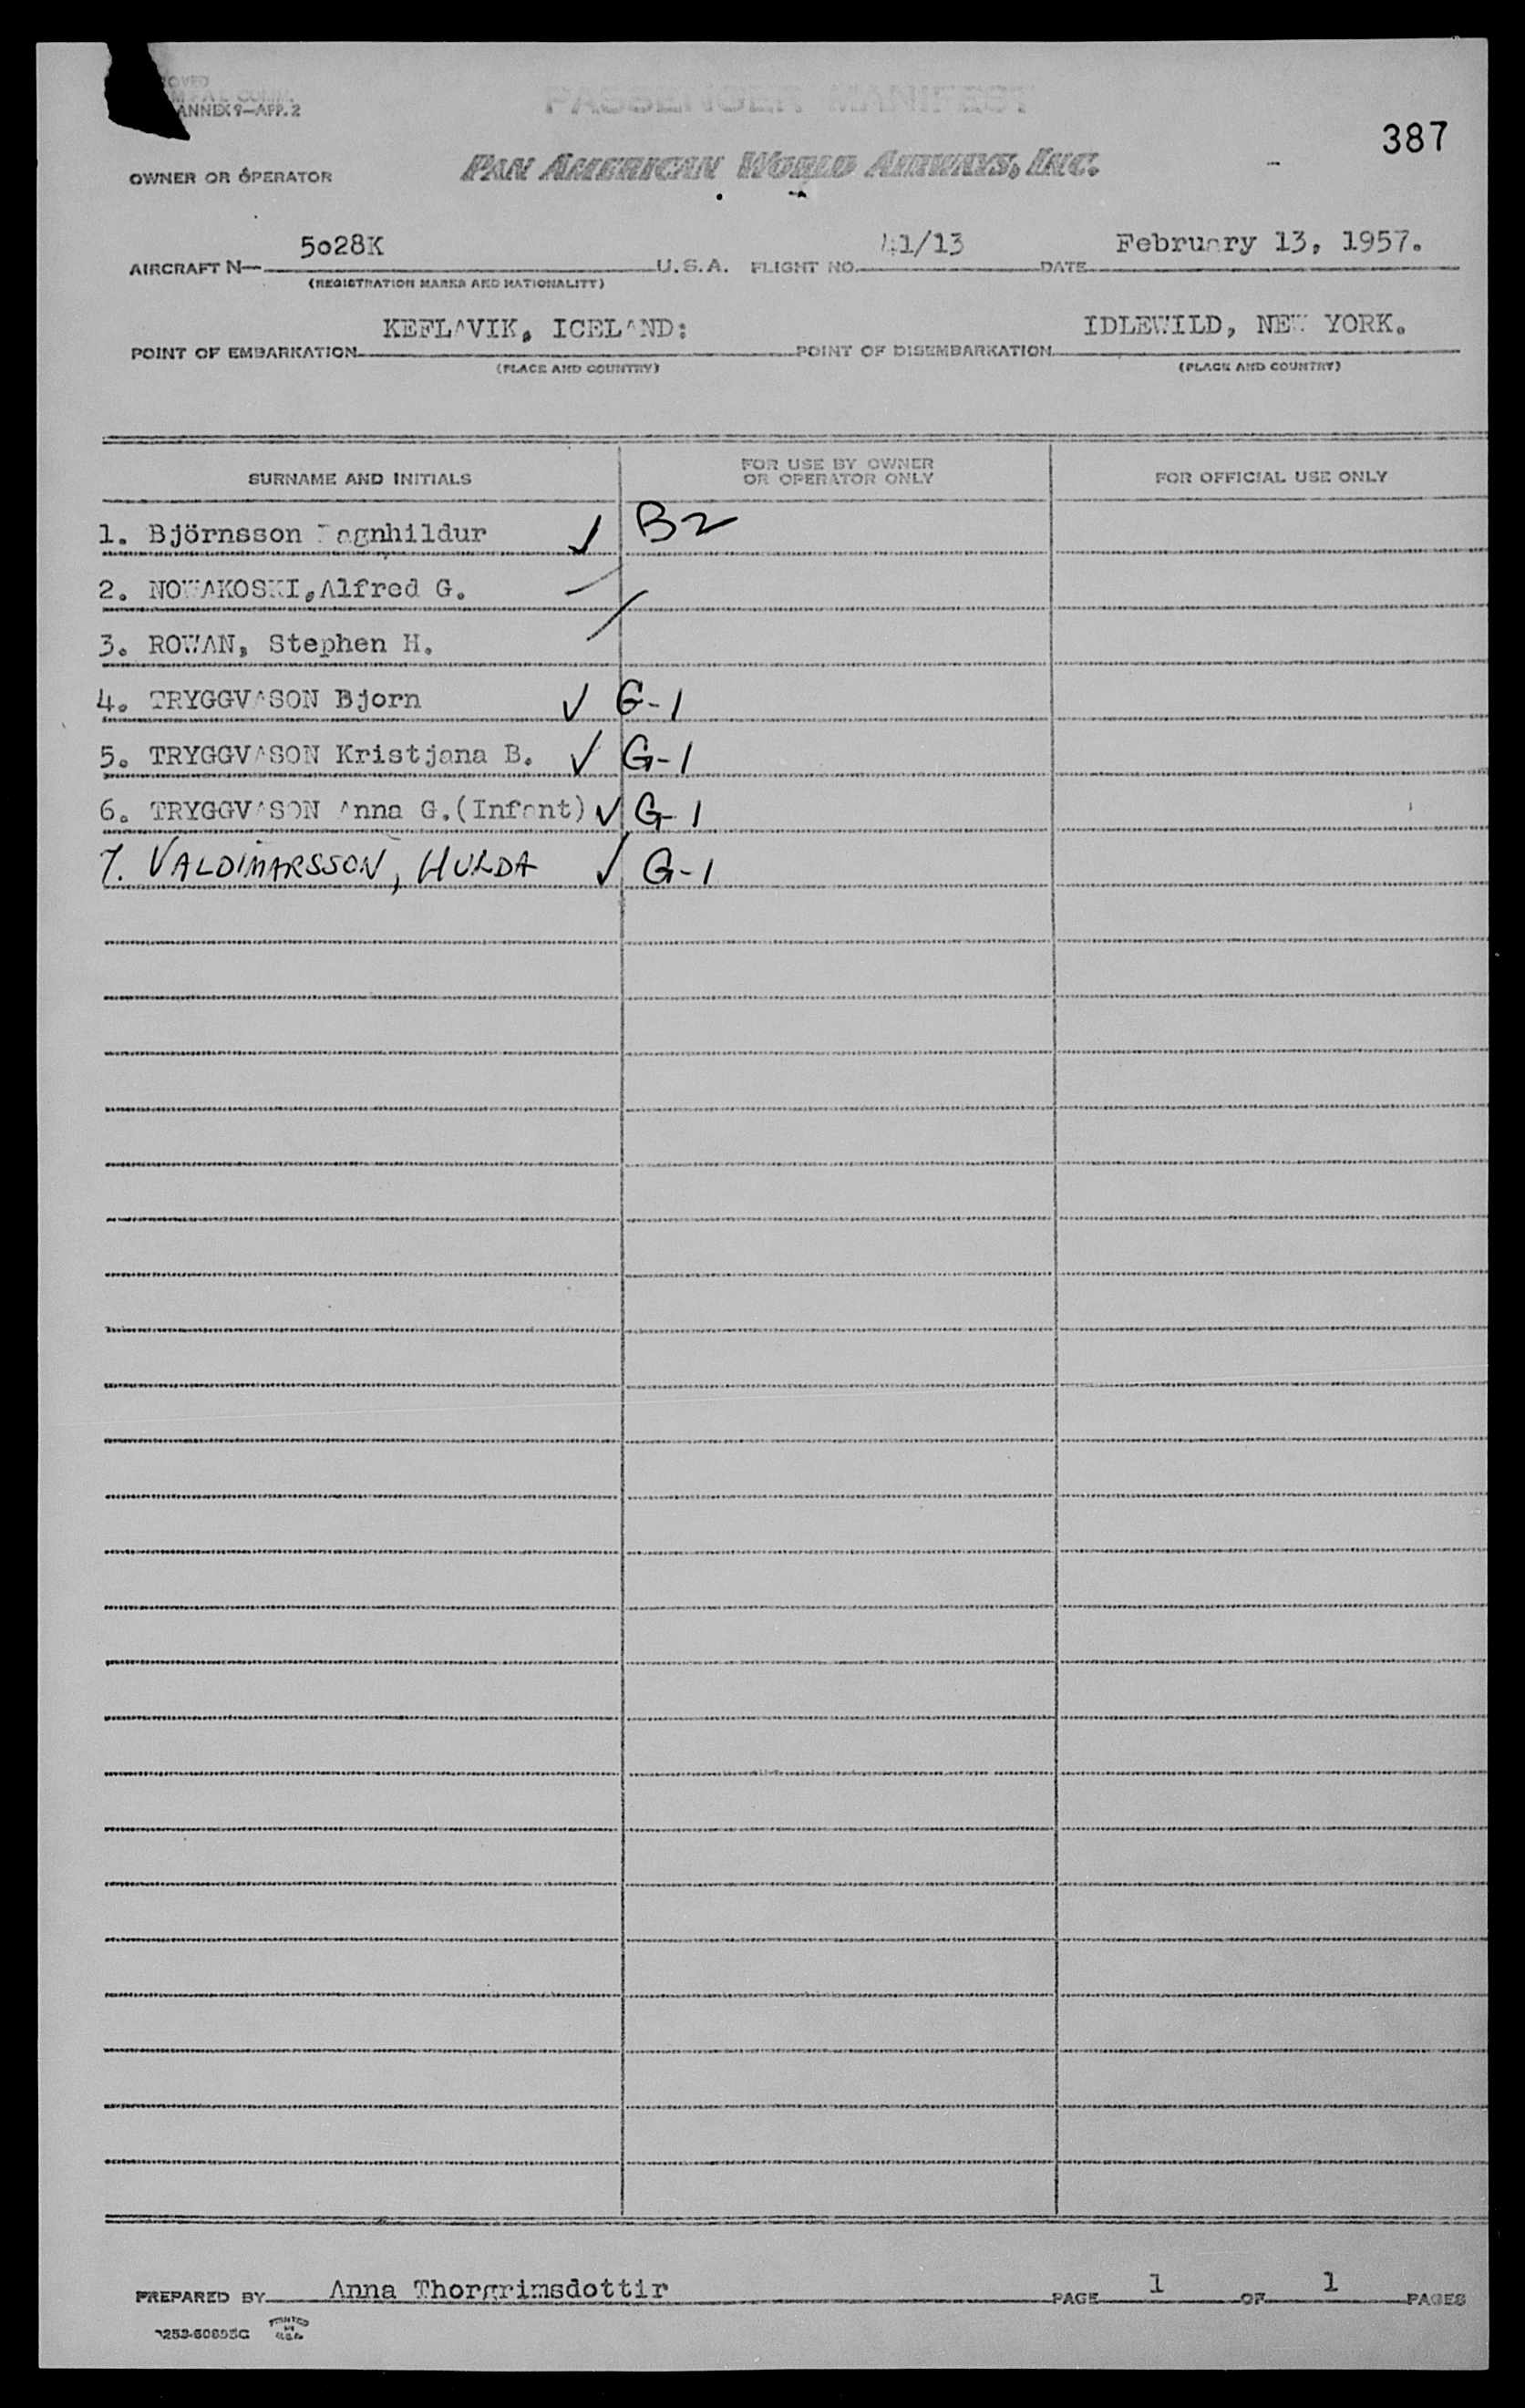 ANNEX 9—APP. 2
PASSENGER MANIFEST
387
OWNER OR OPERATOR
PAN AMERICAN WORLD AIRWAYS, INC.
AIRCRAFT N— 5o28K U.S.A. FLIGHT NO. 41/13 DATE February 13, 1957.
(REGISTRATION MARKS AND NATIONALITY)
POINT OF EMBARKATION KEFLAVIK, ICELAND: POINT OF DISEMBARKATION IDLEWILD, NEW YORK.
(PLACE AND COUNTRY) (PLACE AND COUNTRY)
SURNAME AND INITIALS FOR USE BY OWNER OR OPERATOR ONLY FOR OFFICIAL USE ONLY
1. Björnsson Ragnhildur ✓ B2
2. NOWAKOSKI,Alfred G.
3. ROWAN, Stephen H.
4. TRYGGVASON Bjorn ✓ G-1
5. TRYGGVASON Kristjana B. ✓ G-1
6. TRYGGVASON Anna G.(Infant) ✓ G-1
7. VALDIMARSSON, HULDA ✓ G-1
PREPARED BY Anna Thorgrimsdottir PAGE 1 OF 1 PAGES
PRINTED IN U.S.A.